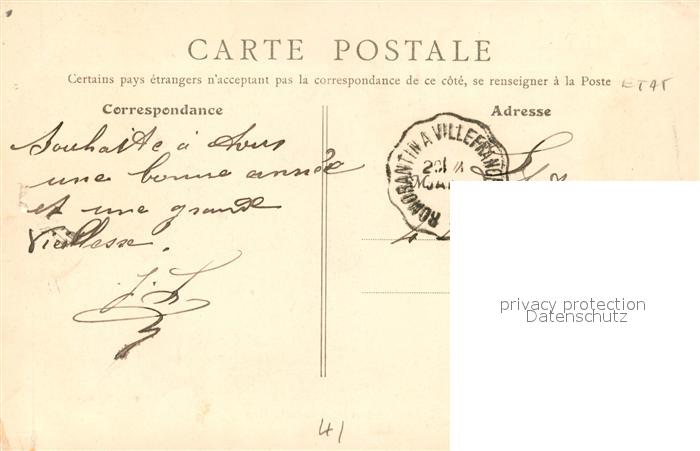 CARTE POSTALE
Certains pays étrangers n'acceptant pas la correspondance de ce côté, se renseigner à la Poste
ETAT
Correspondance
Adresse
Souhaite à tous
une bonne année
et une grande
Vieillesse.
ROMORANTIN A VILLEFRANC
41
privacy protection
Datenschutz